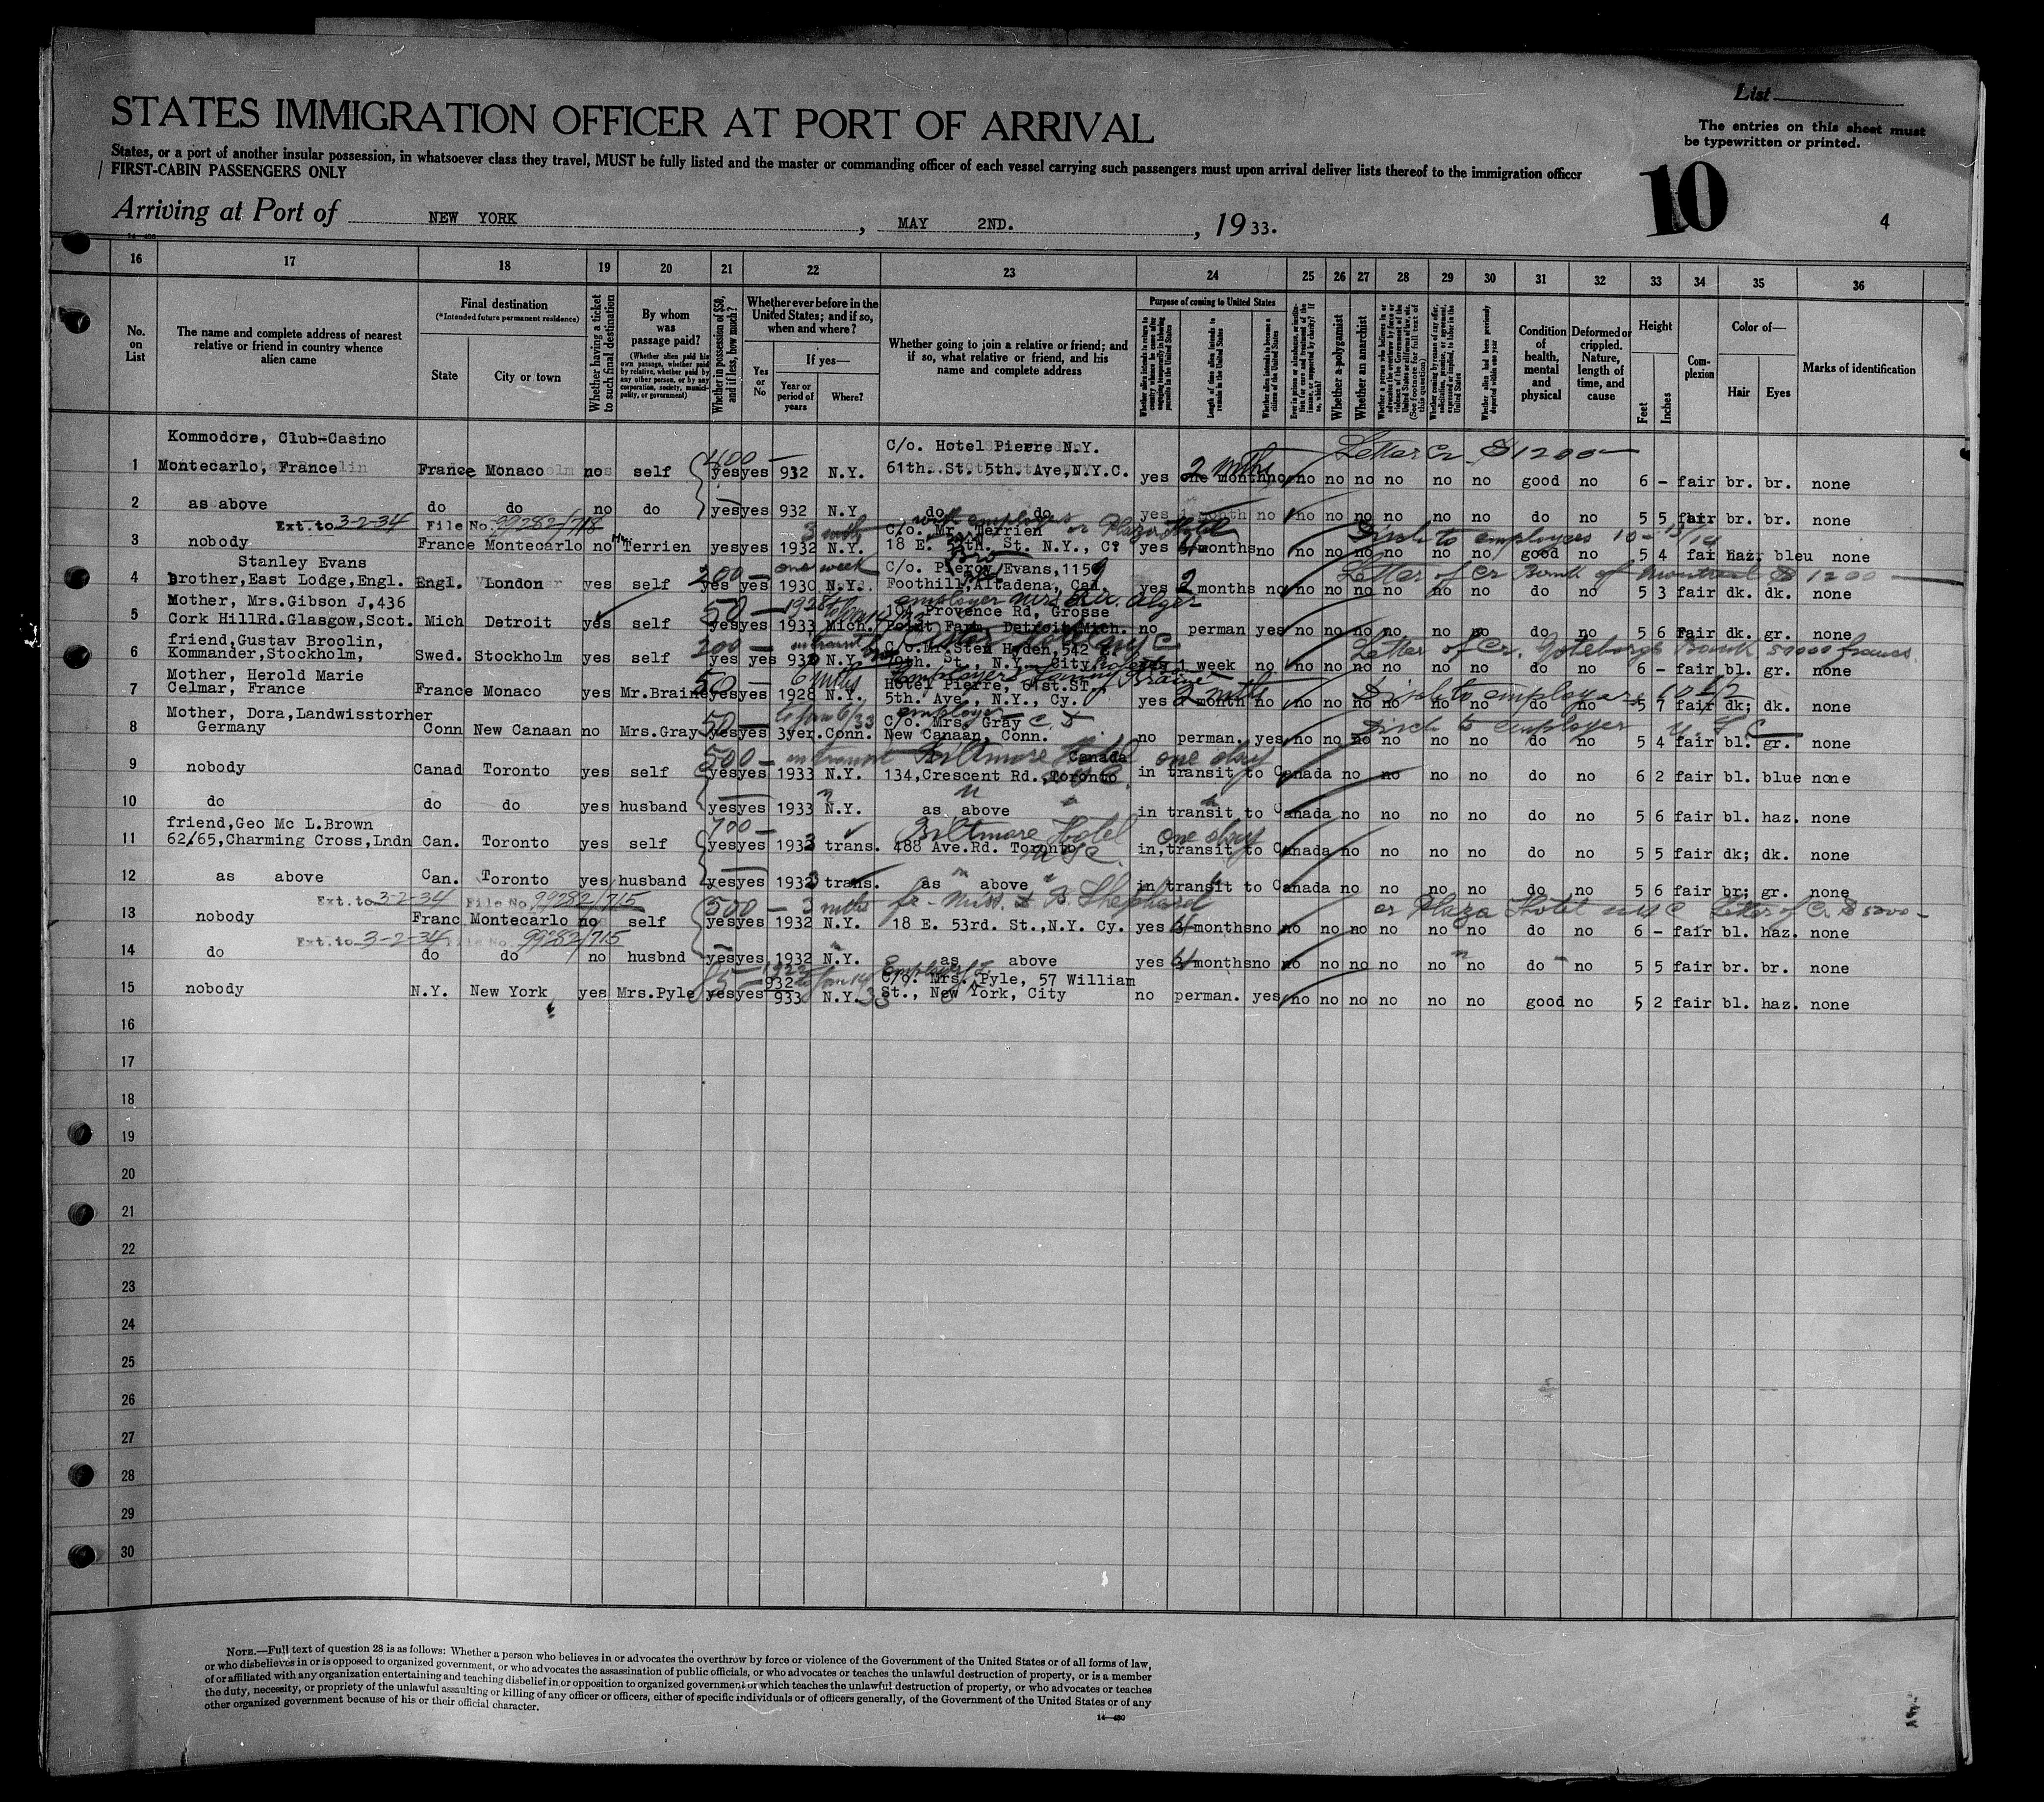 List
STATES IMMIGRATION OFFICER AT PORT OF ARRIVAL
The entries on this sheet must
be typewritten or printed.
States, or a port of another insular possession, in whatsoever class they travel, MUST be fully listed and the master or commanding officer of each vessel carrying such passengers must upon arrival deliver lists thereof to the immigration officer
FIRST-CABIN PASSENGERS ONLY
10
Arriving at Port of NEW YORK, MAY 2ND., 1933.
4
14-480
16 17 18 19 20 21 22 23 24 25 26 27 28 29 30 31 32 33 34 35 36
No. on List
The name and complete address of nearest relative or friend in country whence alien came
Final destination
(*Intended future permanent residence)
State
City or town
Whether having a ticket to such final destination
By whom was passage paid?
(Whether alien paid his own passage, whether paid by relative, whether paid by any other person, or by any corporation, society, municipality, or government)
Whether in possession of $50, and if less, how much?
Whether ever before in the United States; and if so, when and where?
Yes or No
If yes—
Year or period of years
Where?
Whether going to join a relative or friend; and if so, what relative or friend, and his name and complete address
Purpose of coming to United States
Length of time alien intends to remain in the United States
Whether alien intends to become a citizen of the United States
Whether a polygamist
Whether an anarchist
Condition of health, mental and physical
Deformed or crippled. Nature, length of time, and cause
Height
Feet
Inches
Complexion
Color of—
Hair
Eyes
Marks of identification
Kommodore, Club-Casino C/o. Hotel Pierre N.Y. Letter Cr $1200—
400—
1 Montecarlo, France France Monaco no self yes yes 932 N.Y. 61th. St. 5th. Ave,N.Y.C. yes 2 mths one month no no no no no no no good no 6 - fair br. br. none
2 as above do do no do yes yes 932 N.Y. do do yes 1 month no no no no no no no do no 5 5 fair br. br. none
Ext. to 3-2-34 File No. 99282/718 3 mths with employer or Plaza Hotel
C/o. Mr. Terrien Disch to employees
3 nobody France Montecarlo no Terrien yes yes 1932 N.Y. 18 E. St. N.Y., C. yes months no no no no no no no good no 5 4 fair haz. bleu none
Stanley Evans 200— one week C/o. Evans,1159 Letter of Cr Bank of Montreal $1200—
4 brother, East Lodge,Engl. Engl. London yes self yes yes 1930 N.Y. Foothill,Altadena, Cal. yes 2 months no no no no no no no do no 5 3 fair dk. dk. none
Mother, Mrs.Gibson J,436 50— 1928 employer Mrs Alger
104 Provence Rd, Grosse
5 Cork HillRd.Glasgow,Scot. Mich Detroit yes self yes yes 1933 Mich. Point Farm Detroit Mich. no perman yes no no no no no no do no 5 6 Fair dk. gr. none
friend,Gustav Broolin, 300— in transit C/o.Mr.Sten Hyden,542 Letter of Cr. Goteborgs Bank 50000 francs
6 Kommander,Stockholm, Swed. Stockholm yes self yes yes 932 N.Y. 79th. St., N.Y. City 1 week no no no no no no no do no 6 - fair bl. gr. none
Mother, Herold Marie 50— 6 mths Employer Braine
Hotel Pierre, 61st.ST, Disch to employer
7 Celmar, France France Monaco yes Mr.Braine yes yes 1928 N.Y. 5th. Ave., N.Y., Cy. yes 2 mths month no no no no no no no do no 5 7 fair dk; dk. none
Mother, Dora,Landwisstorher 50— employer Disch to employer
C/o. Mrs. Gray
8 Germany Conn New Canaan no Mrs.Gray yes yes 3yer. Conn. New Canaan, Conn. no perman. yes no no no no no no do no 5 4 fair bl. gr. none
500— in transit Biltmore Hotel one day
Canada
9 nobody Canad Toronto yes self yes yes 1933 N.Y. 134,Crescent Rd.,Toronto in transit to Canada no no no no do no 6 2 fair bl. blue none
10 do do do yes husband yes yes 1933 N.Y. as above in transit to Canada no no no no do no 5 6 fair bl. haz. none
friend,Geo Mc L.Brown 700— Biltmore Hotel one day
11 62/65,Charming Cross,Lndn Can. Toronto yes self yes yes 1933 trans. 488 Ave.Rd. Toronto NYC in,transit to Canada no no no no do no 5 5 fair dk; dk. none
12 as above Can. Toronto yes husband yes yes 1932 trans. as above in transit to Canada no no no no do no 5 6 fair br; gr. none
Ext. to 3-2-34 File No. 99282/715 500— 3 mths fr- Miss B. Shephard or Plaza Hotel NYC Letter of Cr. $5200—
13 nobody Franc Montecarlo no self yes yes 1932 N.Y. 18 E. 53rd. St.,N.Y. Cy. yes months no no no no no no no do no 6 - fair bl. haz. none
Ext. to 3-2-34 File No. 99282/715
14 do do do no husbnd yes yes 1932 N.Y. as above yes months no no no no no no no do no 5 5 fair br. br. none
Employer
C/o. Mrs. Pyle, 57 William
15 nobody N.Y. New York yes Mrs.Pyle yes yes 932 933 N.Y. St., New York, City no perman. yes no no no no no no good no 5 2 fair bl. haz. none
16
17
18
19
20
21
22
23
24
25
26
27
28
29
30
NOTE.—Full text of question 28 is as follows: Whether a person who believes in or advocates the overthrow by force or violence of the Government of the United States or of all forms of law,
or who disbelieves in or is opposed to organized government, or who advocates the assassination of public officials, or who advocates or teaches the unlawful destruction of property, or is a member
of or affiliated with any organization entertaining and teaching disbelief in or opposition to organized government or which teaches the unlawful destruction of property, or who advocates or teaches
the duty, necessity, or propriety of the unlawful assaulting or killing of any officer or officers, either of specific individuals or of officers generally, of the Government of the United States or of any
other organized government because of his or their official character.
14—480